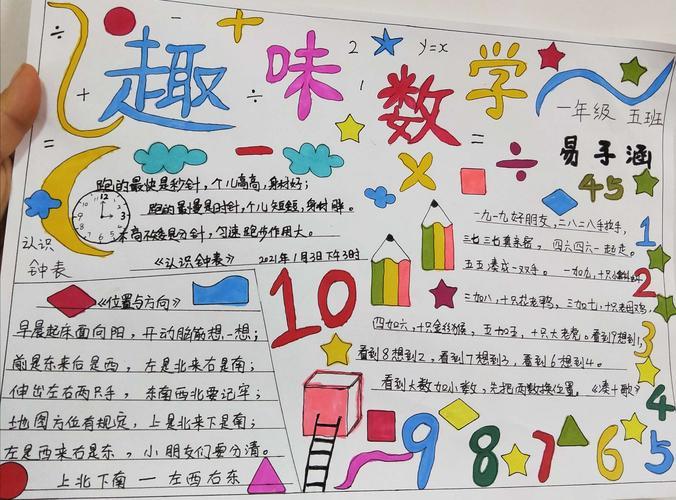 趣味数学
÷ + - + ÷ = 2 1 y=x
一年级 五班
易子涵
45
跑的最快是秒针，个儿高高，身材好；
跑的最慢是时针，个儿短短，身材胖。
不高不矮是分针，匀速跑步作用大。
《认识钟表》 2021年1月3日下午3时
认识
钟表
12
3
一九一九好朋友，二八二八手拉手，
三七三七真亲密，四六四六一起走。
五五凑成一双手。一加九，十只
二加八，十只花老鸭，三加七，十只老母鸡，
四加六，十只金丝猴，五加五，十只大老虎。看到9想到1，
看到8想到2，看到7想到3，看到6想到4。
看到大数加小数，先把两数换位置。《凑十歌》
10
1
2
3
4
5
6
7
8
9
《位置与方向》
早晨起床面向阳，开动脑筋想一想；
前是东来后是西，左是北来右是南；
伸出左右两只手，东南西北要记牢；
地图方位有规定，上是北来下是南；
左是西来右是东，小朋友们要分清。
上北下南 — 左西右东